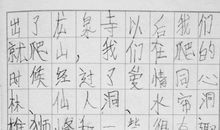 出了龙泉寺以后我们
就爬山,我们在爬的
时候经过了爱情同心
林、仙人洞、水帘洞
狮 和 一些很